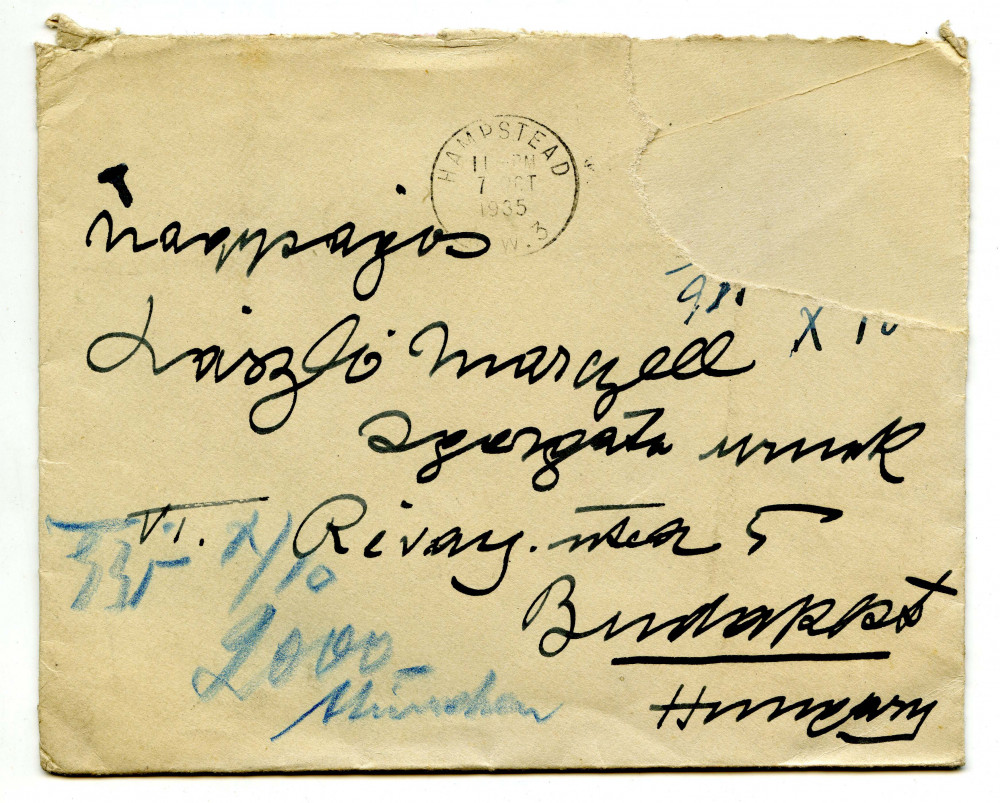 HAMPSTEAD
11 PM
7 OCT
1935
W.3
Nagyságos
László Marczell
igazgató urnak
VI. Révay utca 5
Budapest
Hungary
X/10
2000
München